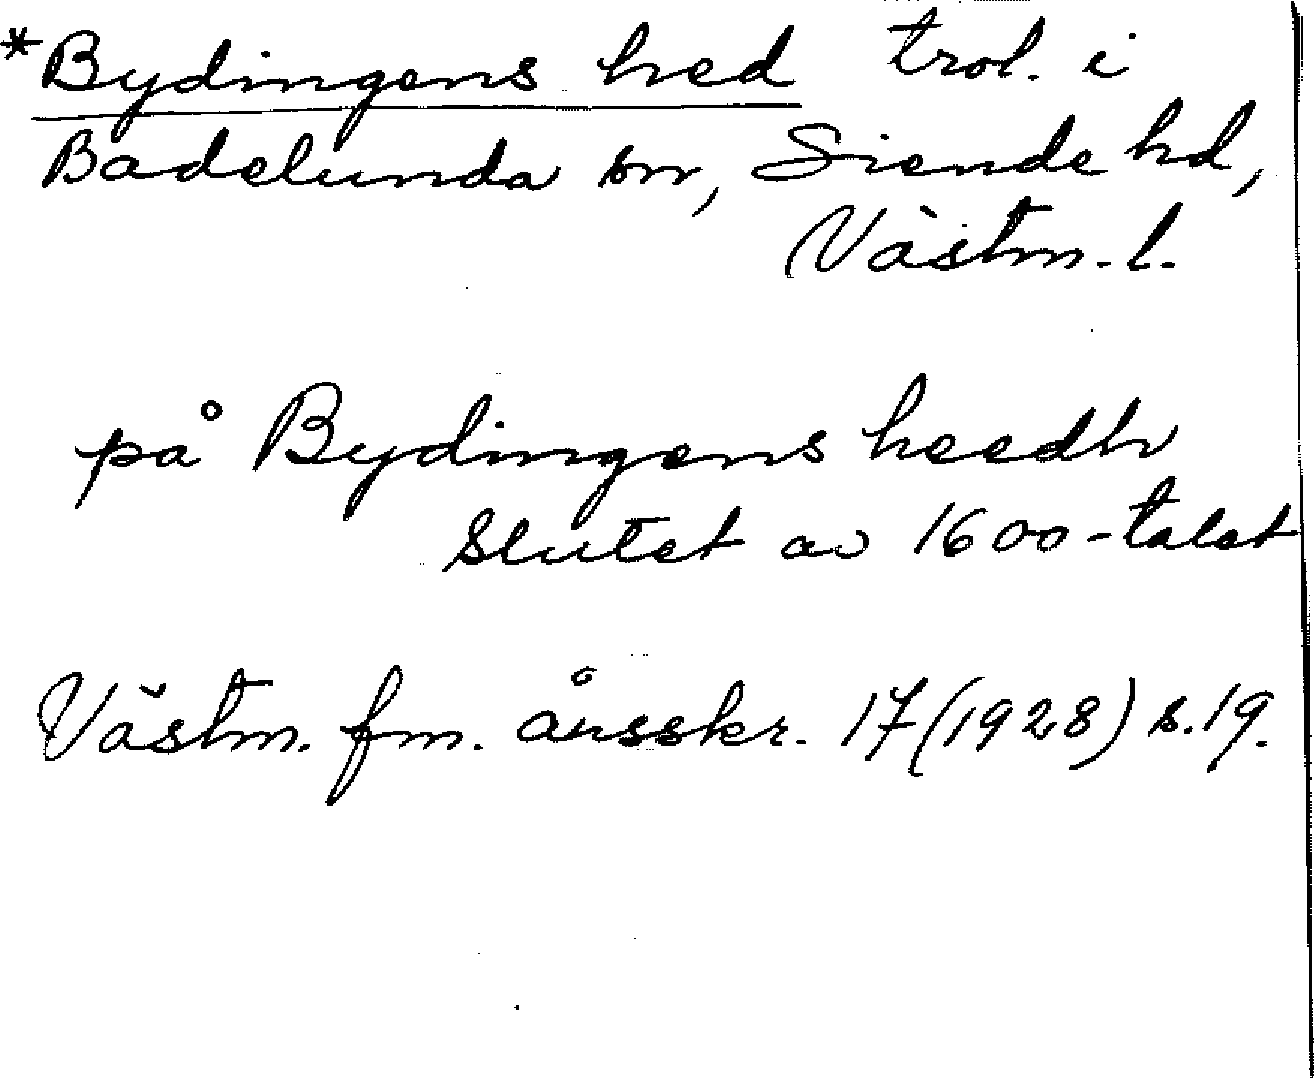 *Bydingens hed trol. i
Badelunda sn, Siende hd,
Västm. l.
på Bydingens heedh
Slutet av 1600-talet
Västm. fm. årsskr. 17 (1928) s. 19.